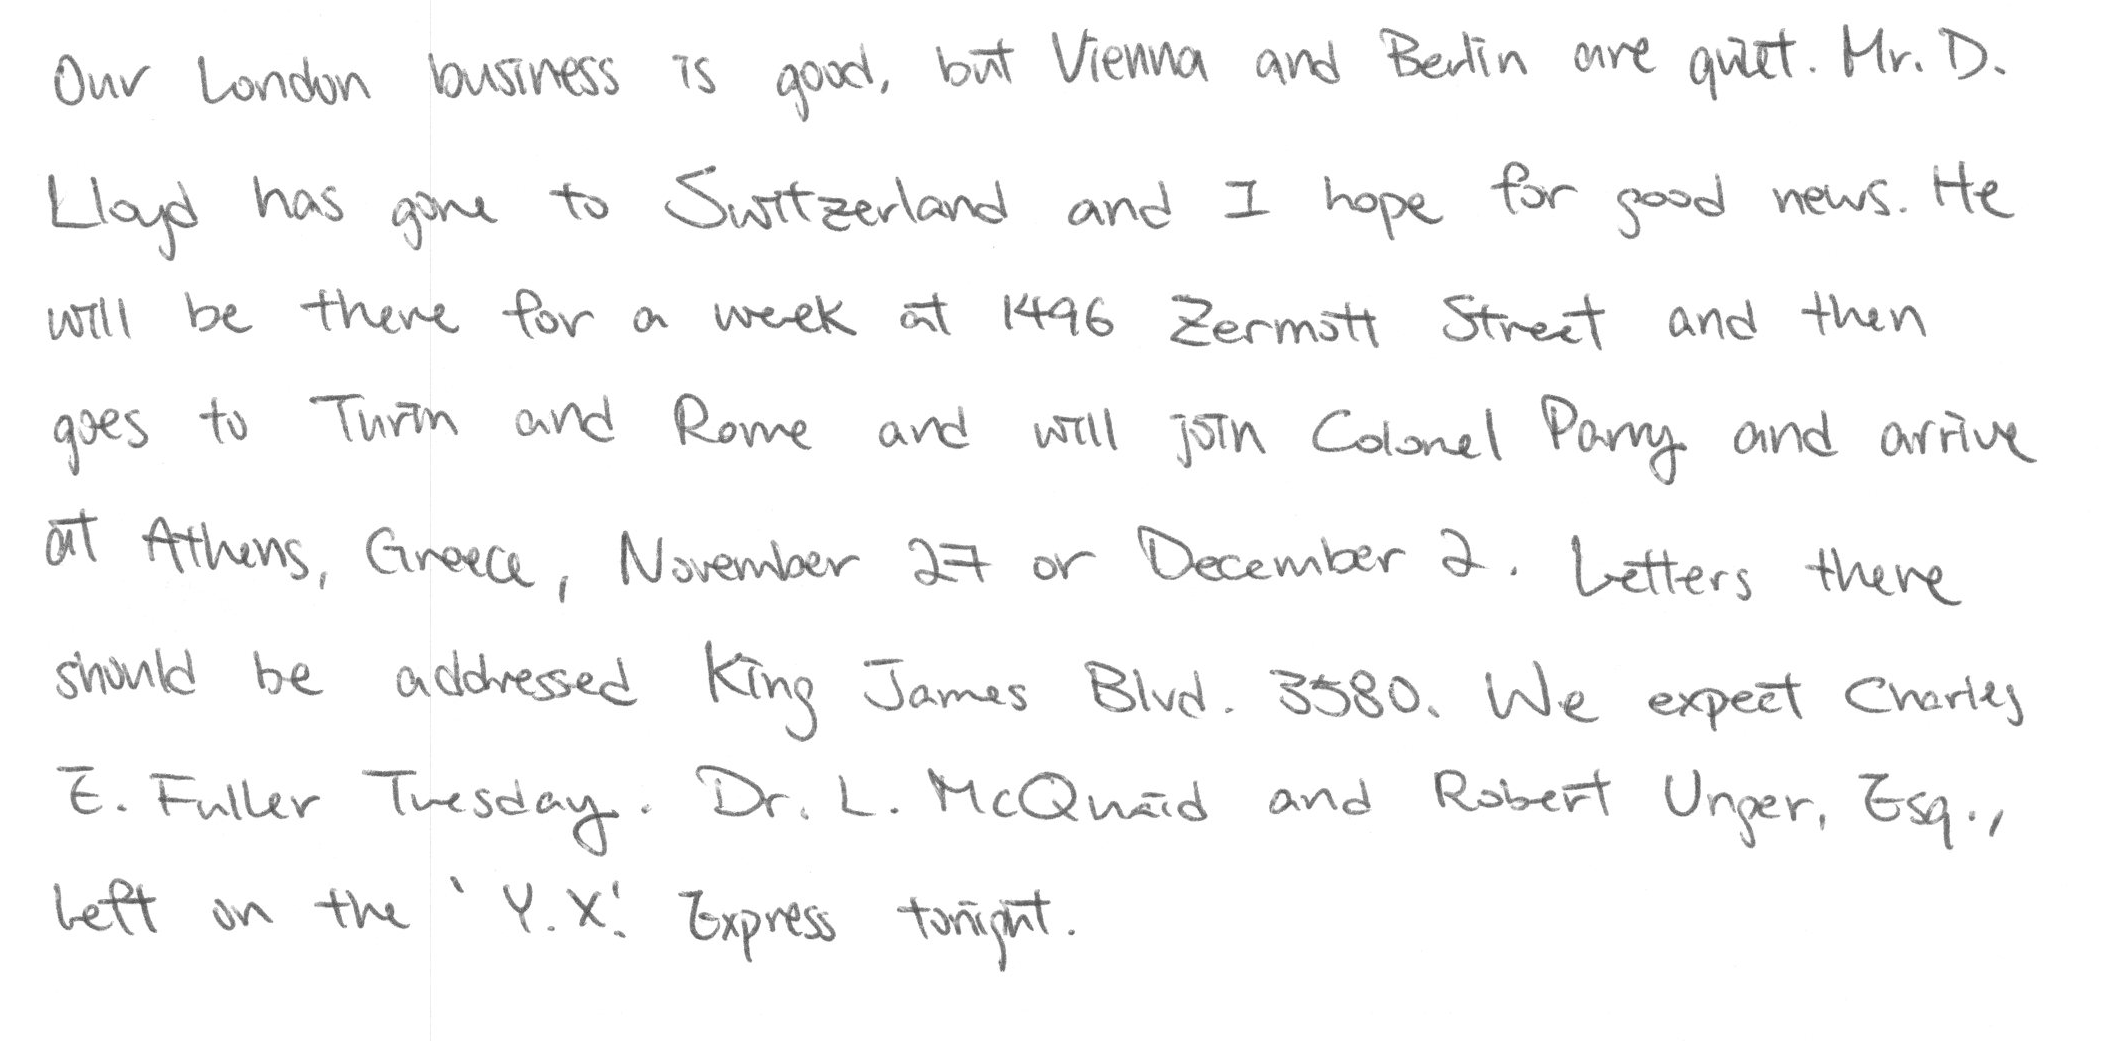 Our London business is good, but Vienna and Berlin are quiet. Mr. D.
Lloyd has gone to Switzerland and I hope for good news. He
will be there for a week at 1496 Zermott Street and then
goes to Turin and Rome and will join Colonel Parry and arrive
at Athens, Greece, November 27 or December 2. Letters there
should be addressed King James Blvd. 3580. We expect Charles
E. Fuller Tuesday. Dr. L. McQuaid and Robert Unger, Esq.,
left on the 'Y.X.' Express tonight.